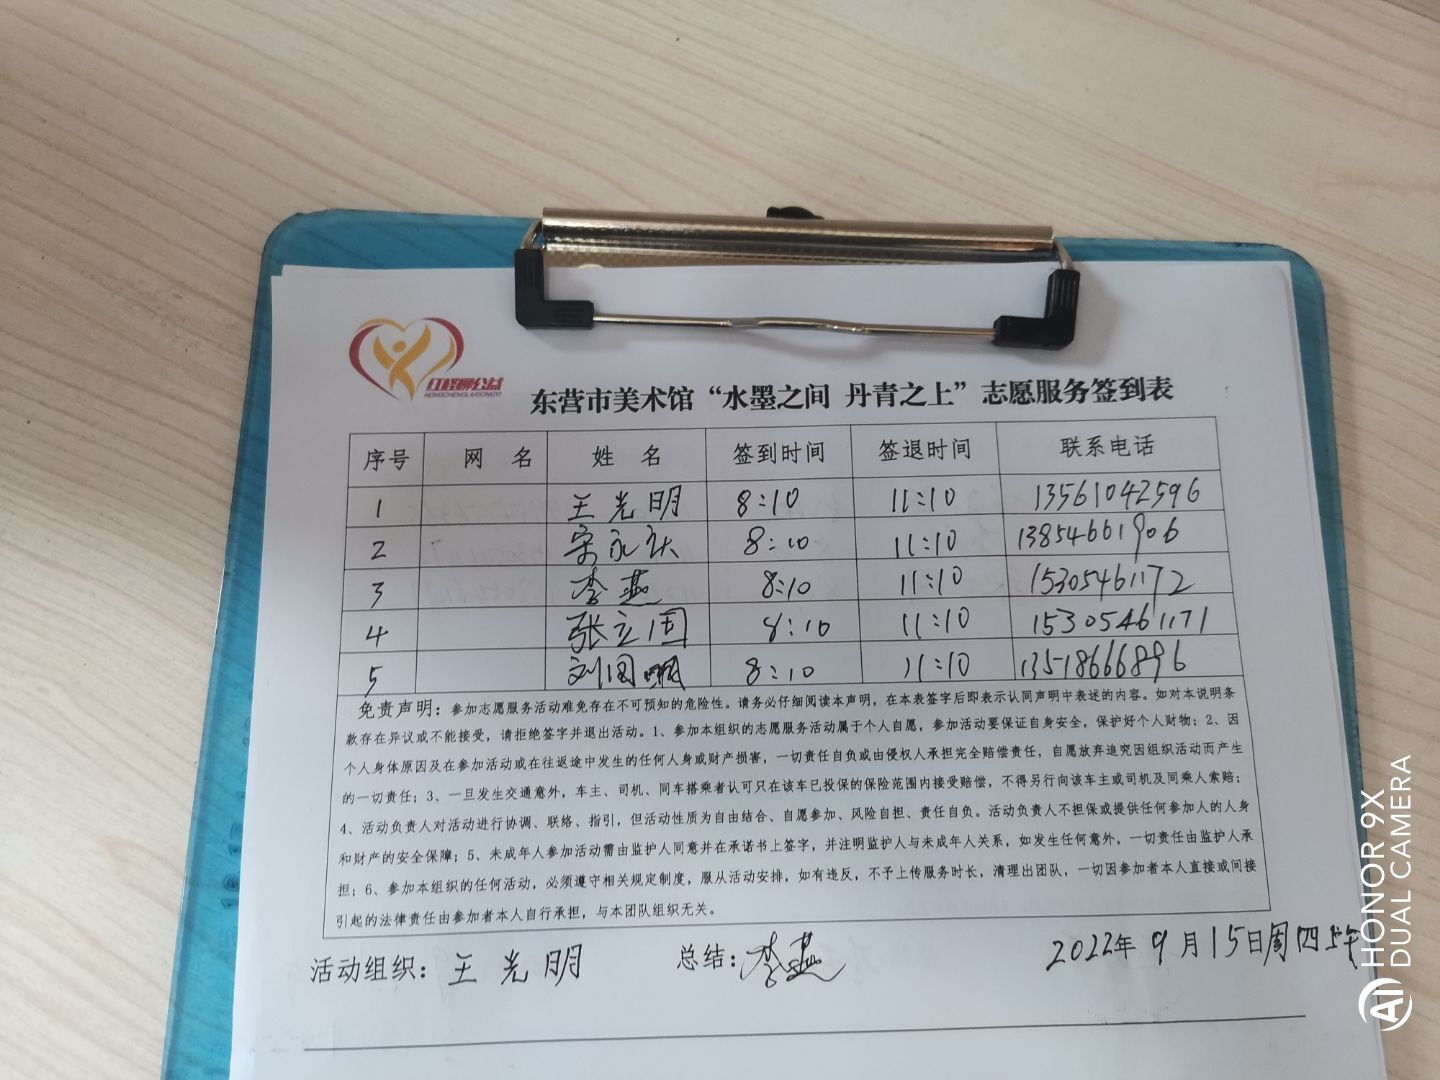 红柽柳公益
HONGCHENGLIUGONGYI
东营市美术馆“水墨之间 丹青之上”志愿服务签到表
序号 网 名 姓 名 签到时间 签退时间 联系电话
1 王光明 8:10 11:10 13561042596
2 宋永 8:10 11:10 13854661906
3 李燕 8:10 11:10 15305461172
4 张立国 8:10 11:10 15305461171
5 刘国 8:10 11:10 13518666896
免责声明：参加志愿服务活动难免存在不可预知的危险性。请务必仔细阅读本声明，在本表签字后即表示认同声明中表述的内容。如对本说明条
款存在异议或不能接受，请拒绝签字并退出活动。1、参加本组织的志愿服务活动属于个人自愿，参加活动要保证自身安全，保护好个人财物；2、因
个人身体原因及在参加活动或在往返途中发生的任何人身或财产损害，一切责任自负或由侵权人承担完全赔偿责任，自愿放弃追究因组织活动而产生
的一切责任；3、一旦发生交通意外，车主、司机、同车搭乘者认可只在该车已投保的保险范围内接受赔偿，不得另行向该车主或司机及同乘人索赔；
4、活动负责人对活动进行协调、联络、指引，但活动性质为自由结合、自愿参加、风险自担、责任自负。活动负责人不担保或提供任何参加人的人身
和财产的安全保障；5、未成年人参加活动需由监护人同意并在承诺书上签字，并注明监护人与未成年人关系，如发生任何意外，一切责任由监护人承
担；6、参加本组织的任何活动，必须遵守相关规定制度，服从活动安排，如有违反，不予上传服务时长，清理出团队，一切因参加者本人直接或间接
引起的法律责任由参加者本人自行承担，与本团队组织无关。
活动组织：王光明 总结：李燕 2022年9月15日周四上午
HONOR 9X
AI DUAL CAMERA